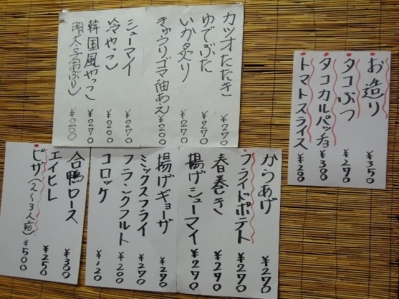 カツオたたき ¥270
ゆでぶた ¥270
いか炙り ¥270
きゅうりゴマ油あえ ¥200
シューマイ ¥270
冷やっこ ¥200
韓国風やっこ ¥270
お造り ¥350
タコぶつ ¥270
タコカルパッチョ ¥270
トマトスライス ¥200
からあげ ¥270
フライドポテト ¥270
春巻き ¥270
揚げシューマイ ¥270
揚げギョーザ ¥270
ミックスフライ ¥270
フランクフルト ¥200
コロッケ ¥120
合鴨ロース ¥300
エイヒレ ¥250
ピザ(2〜3人前) ¥500